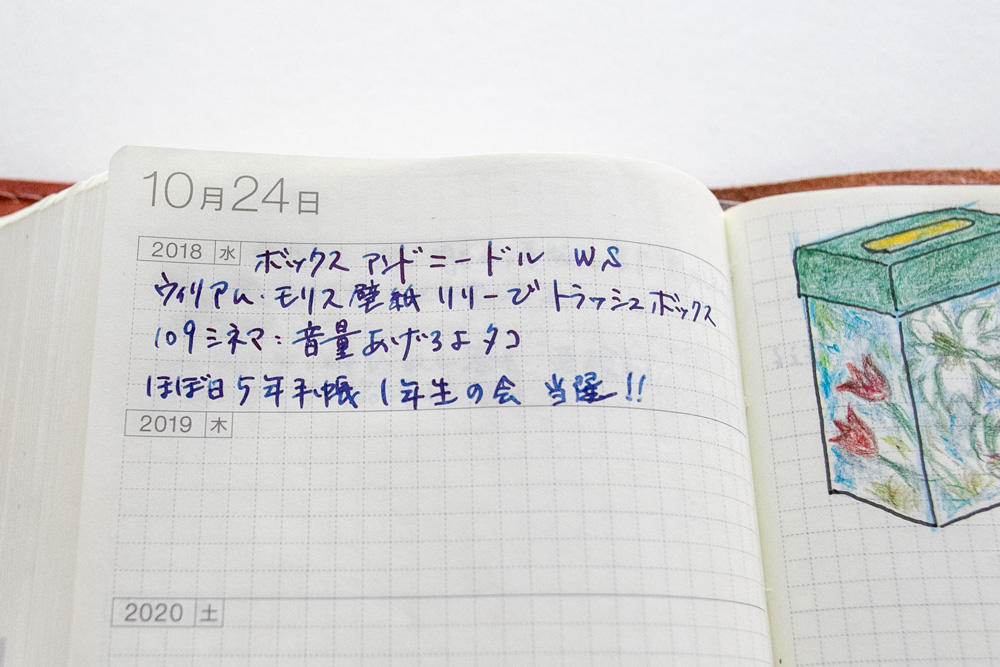 10月24日
2018 水 ボックス アンド ニードル WS
ウィリアム・モリス壁紙 リリーでトラッシュボックス
109シネマ:音量あげろよタコ
ほぼ日5年手帳 1年生の会 当選!!
2019 木
2020 土